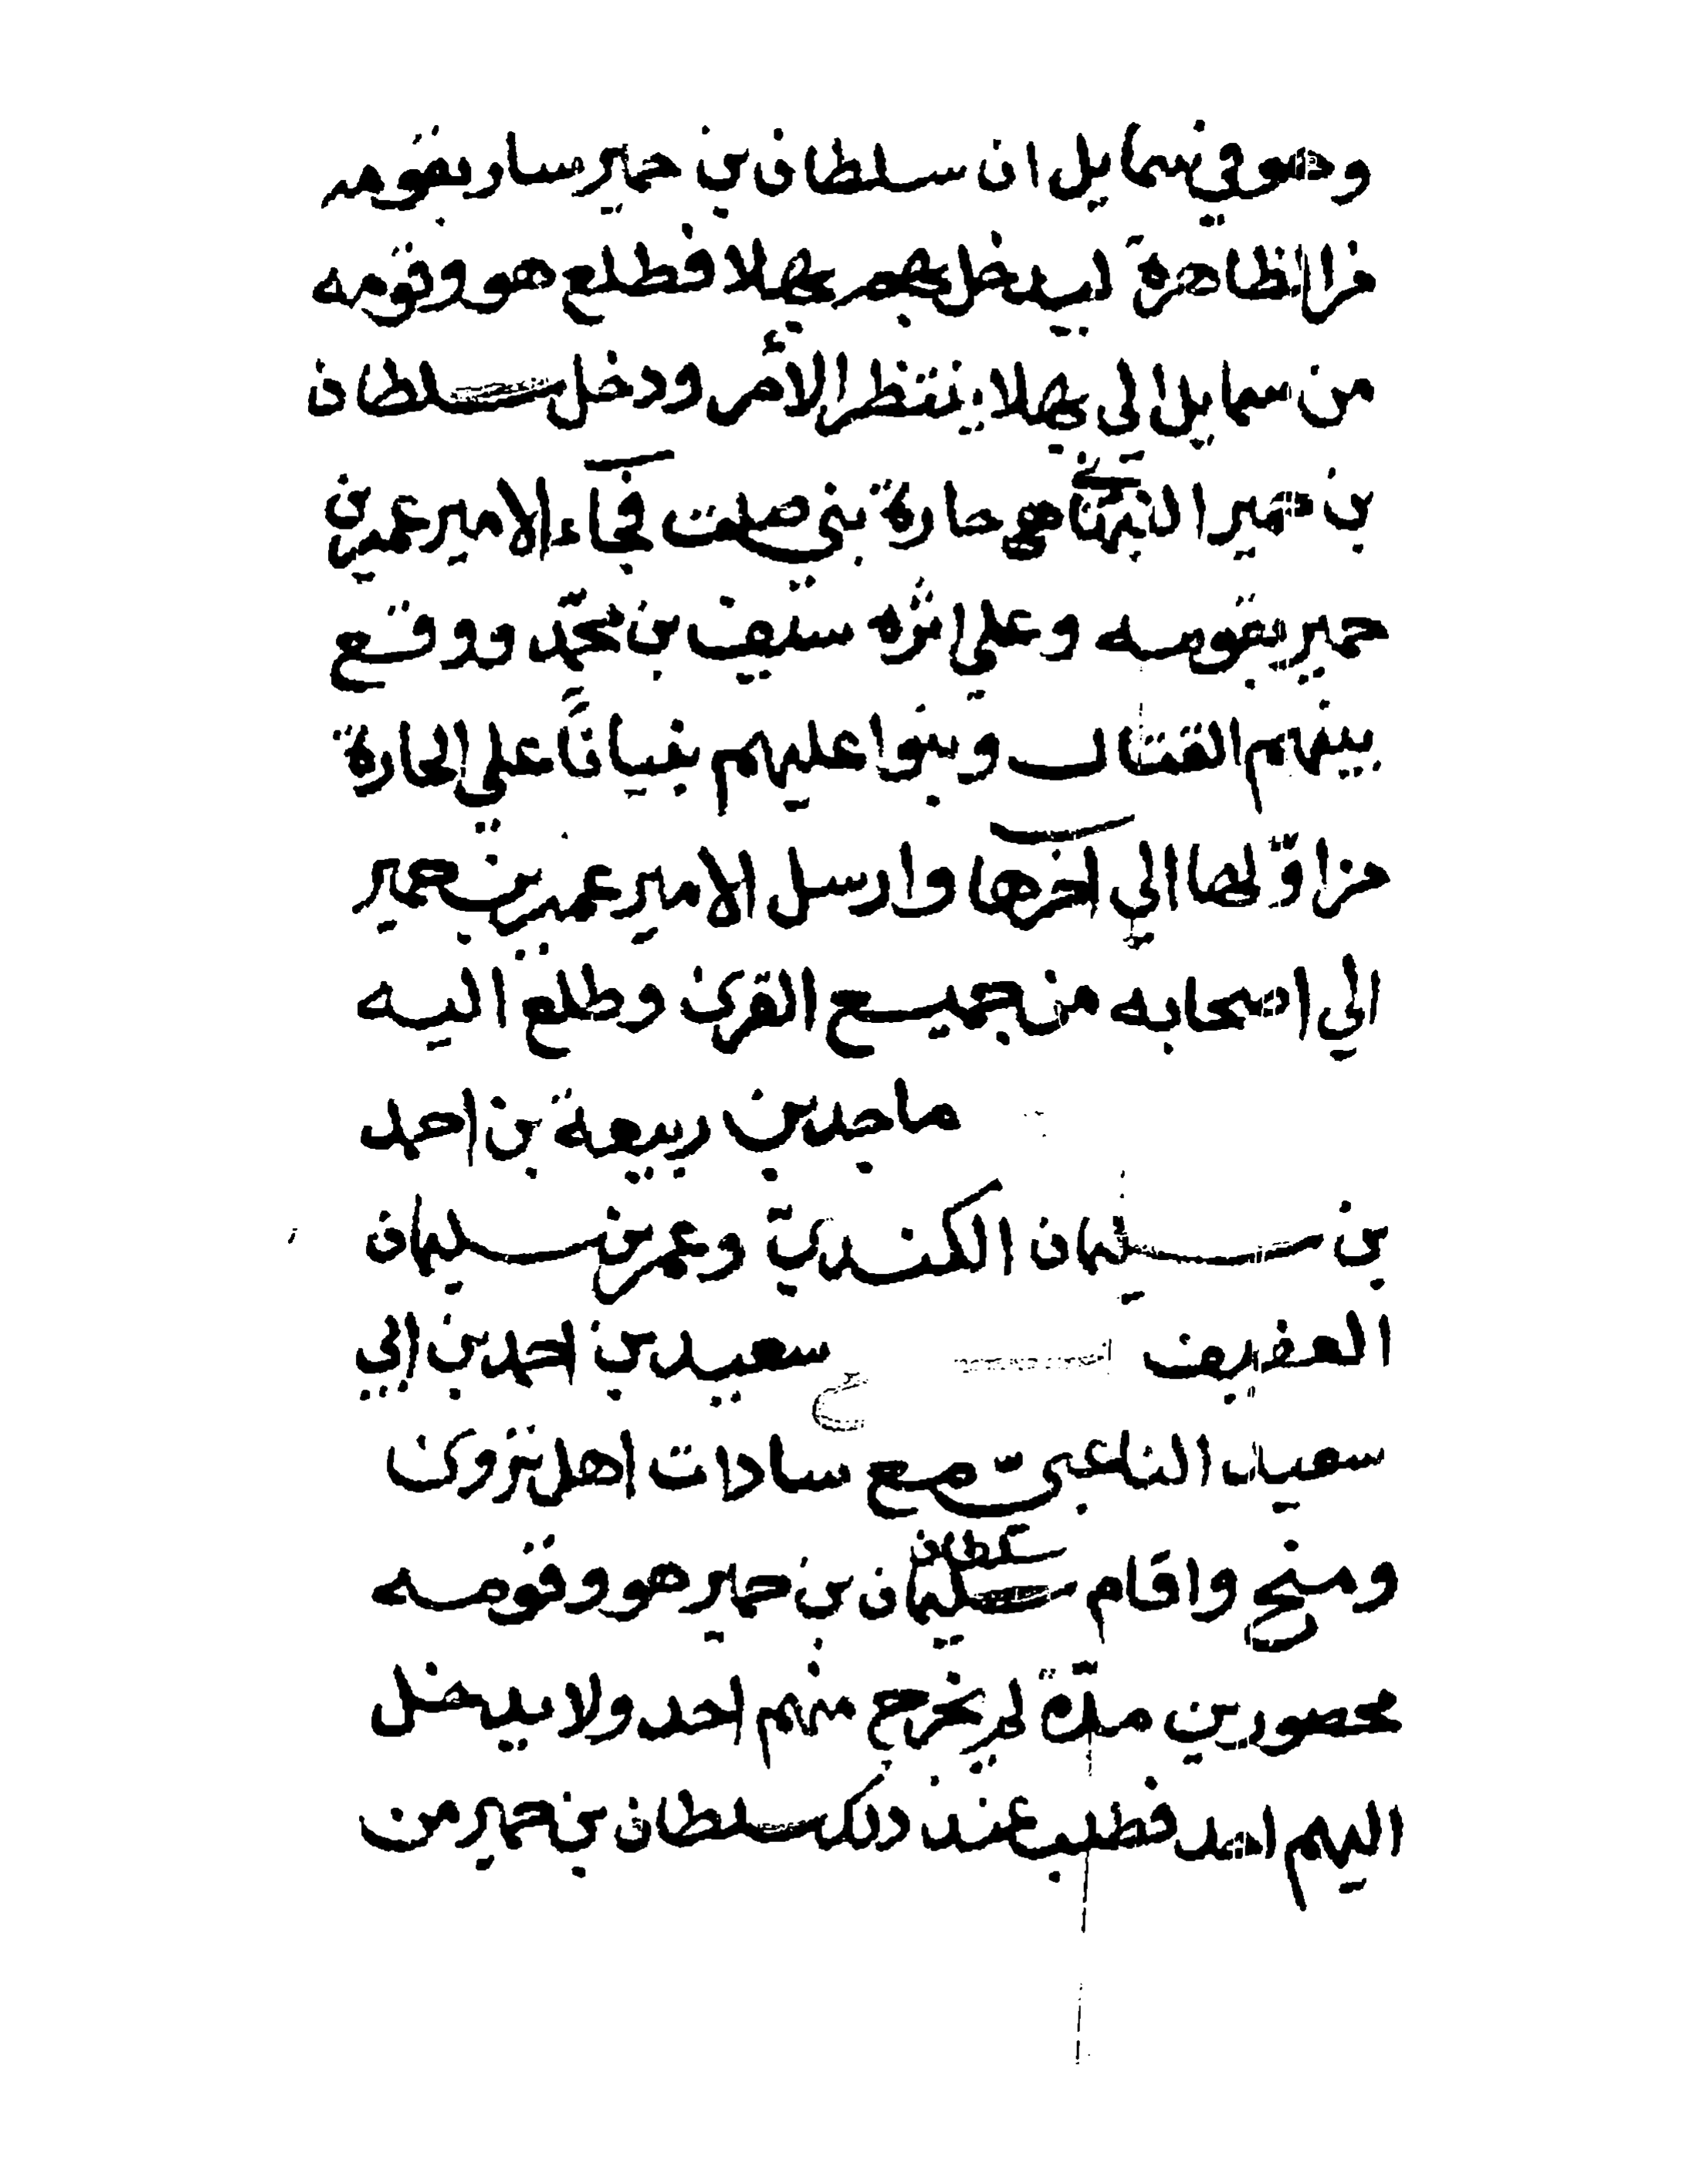 وهو في سمايل ان سلطان بن حمير سار بقومه
من الظاهرة ليدخل بهم بهلا فطلع هو وقومه
من سمايل الى بهلا ينتظر الأمر ودخل سلطان
بن حمير النبهاني حارة بني صلت فجاء الامير عمير بن
حمير بقومه وعلي اثره سيف بن محمّد ووقع
بينهم القتال وبنوا عليهم بنياناً علي الحارة
من اوّلها الي آخرها وارسل الامير عمير بن حمير
الي اصحابه من جميع القرى وطلع اليه
ماجد بن ربيعة بن احمد
بن سليمان الكندي وعمر بن سليمان
العفيف سعيد بن احمد بن ابي
سعيد الناعبي مع سادات اهل نزوى
ومنح واقام سلطان بن حمير هو وقومه
محصورين مدّة لم يخرج منهم احد ولا يدخل
اليهم احد فطلب عند ذلك سلطان بن حمير من